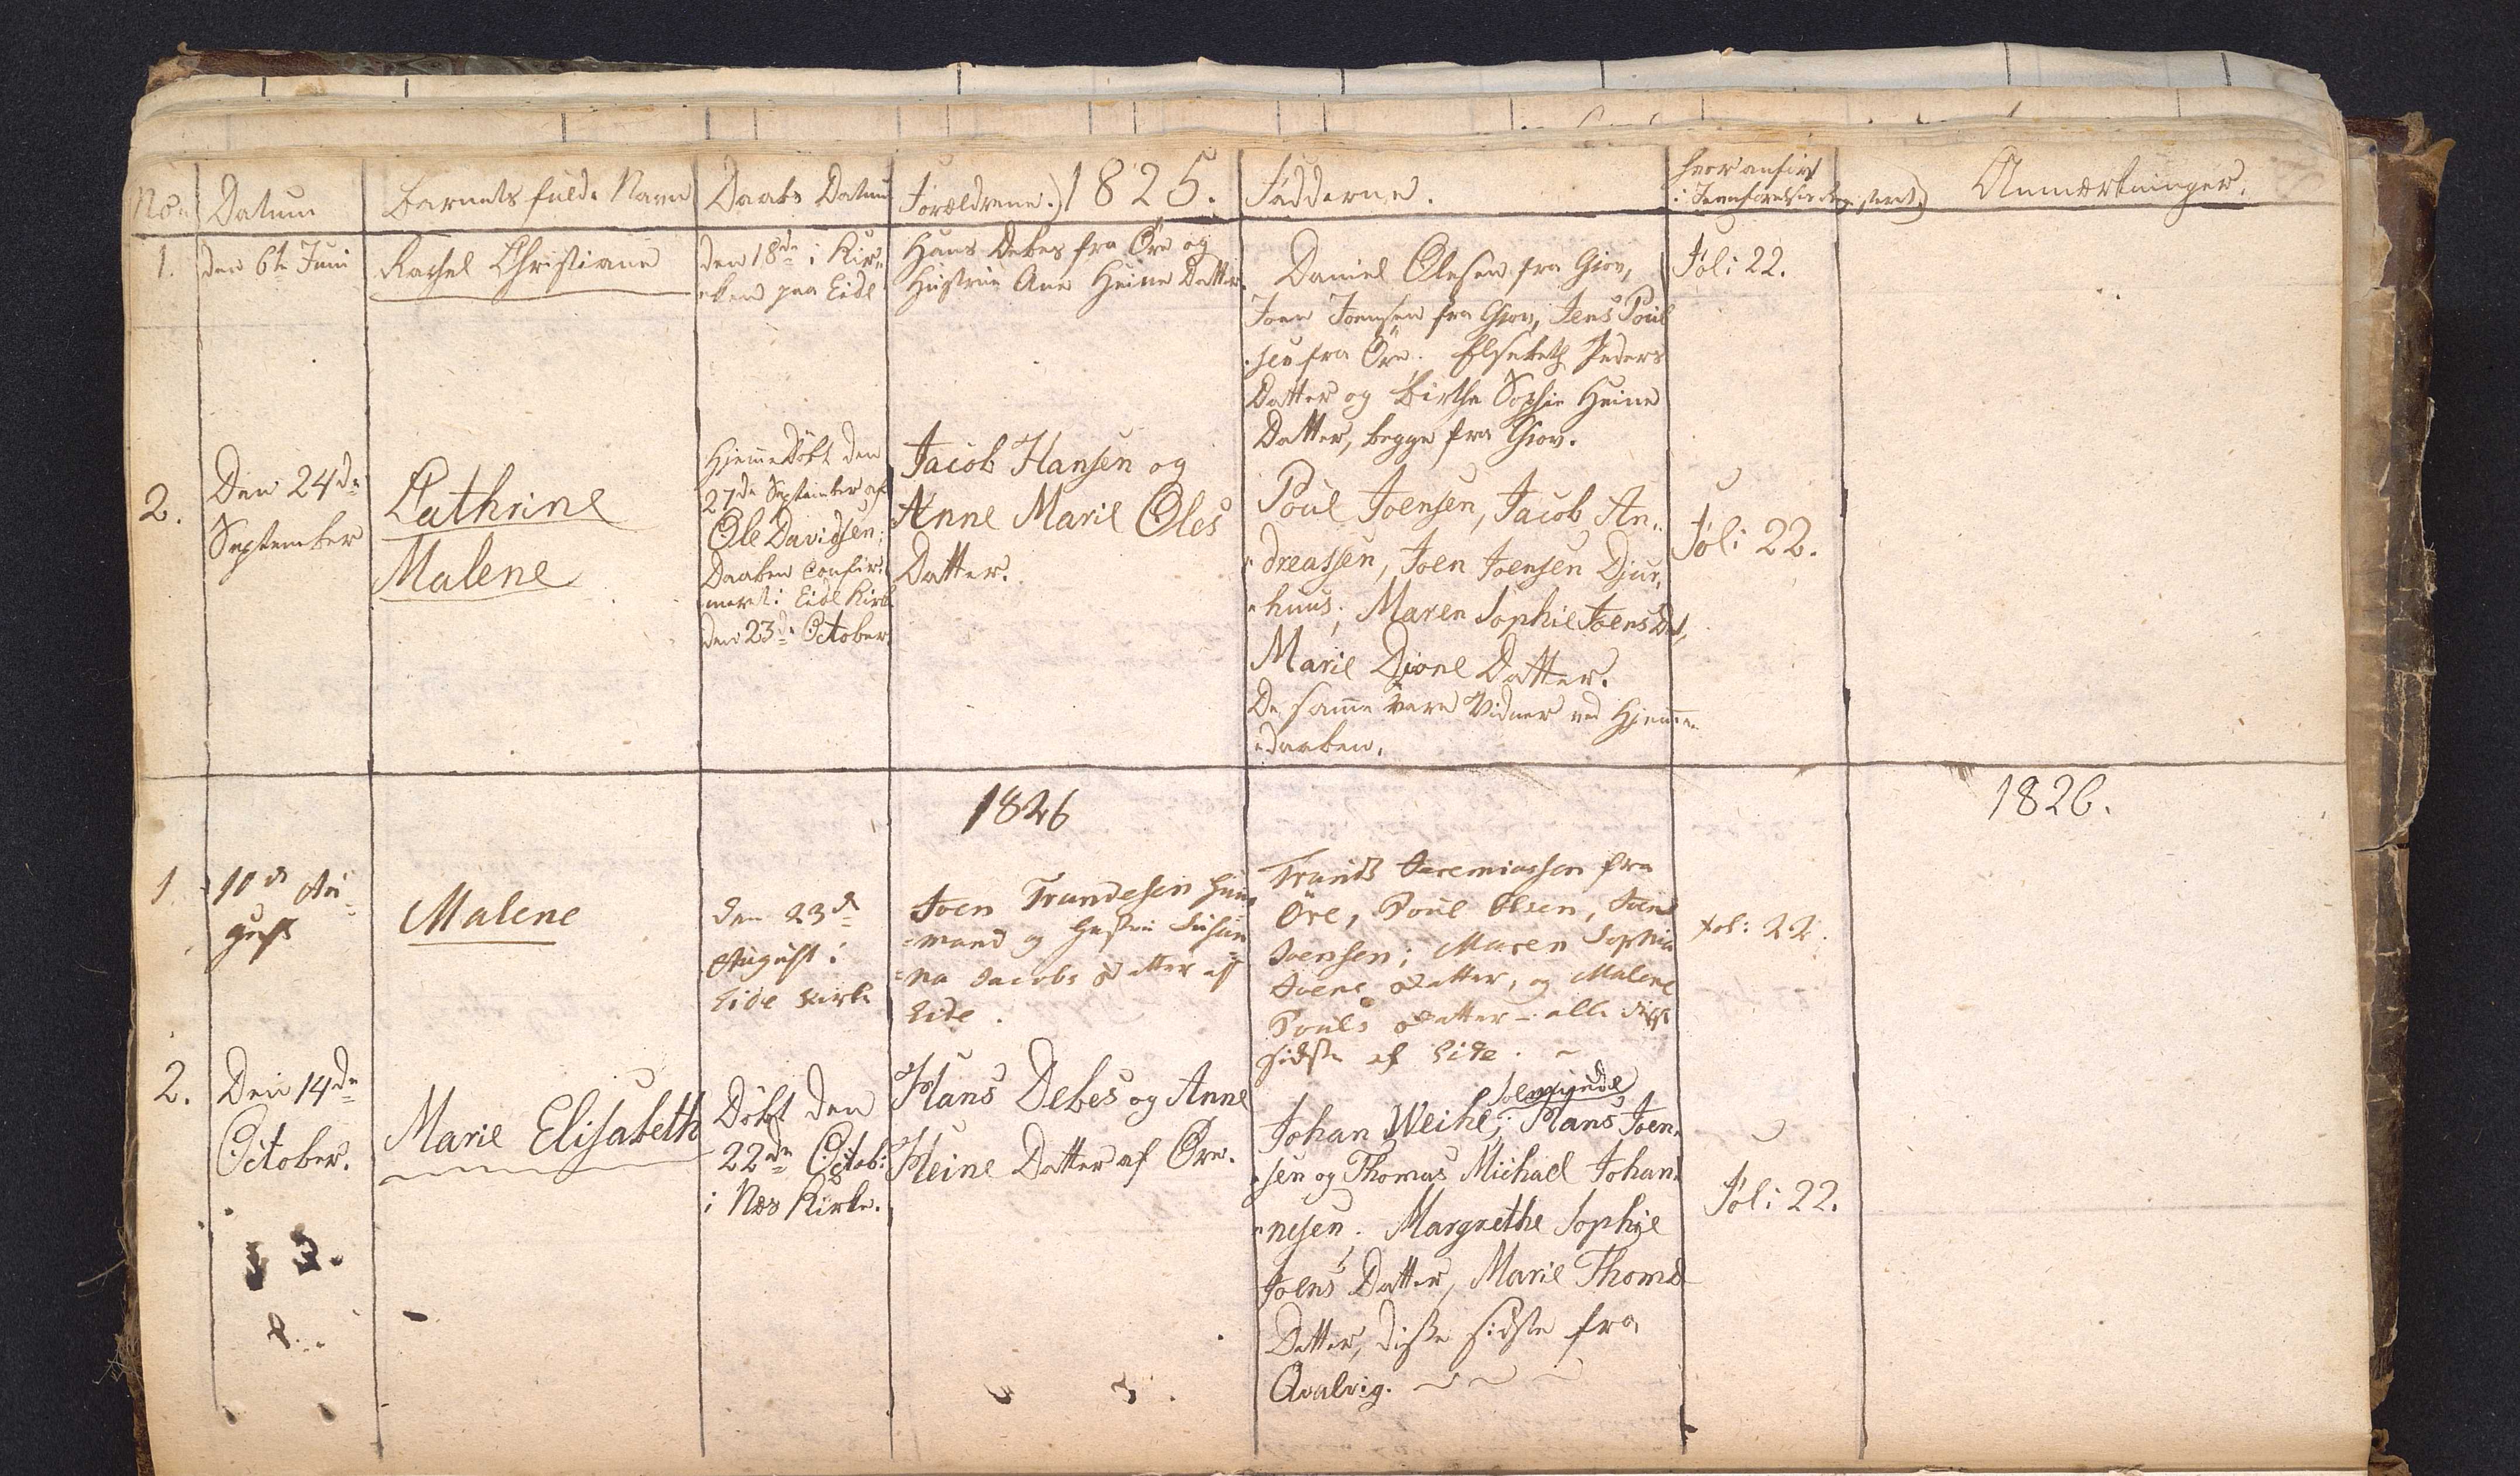 No. Datum Barnets fulde Navn Daabs Datum Forældrene. 1825. Fadderne. hvor anført i Jevnførelses Registeret. Anmærkninger.
1. den 6te Juni
Rachel Christiane
den 18de i Kir-
-ken paa Eide
Hans Debes fra Øre og
Hustrue Ane Heine Datter.
Daniel Olesen fra Giov,
Joen Joensen fra Giov, Jens Poul
-sen fra Øre. Elsebeth Peders
Datter og Birthe Sophie Heine
Datter, begge fra Giov.
Fol: 22.
2. Den 24de
September
Cathrine
Malene
Hjemmedöbt den
27de September af
Ole Davidsen;
Daaben confir-
meret i Eide Kirke
den 23de October.
Jacob Hansen og
Anne Marie Oles
Datter.
Poul Joensen, Jacob An-
-dreassen, Joen Joensen Djur-
-huus; Maren Sophie Joens Dat,
Marie Dione Datter.
De samme vare Vidner ved Hjemme-
-daaben.
Fol: 22.
1826
1826.
1. 10de Au-
gust
Malene
den 23de
August i
Eide Kirke
Joen Trundesen Huus
-mand og Hustrue Susan
-na Jacobs Datter af
Eide.
Trunds Jeremiassen fra
Öre, Poul Olsen, Joen
Joensen; Maren Sophia
Joens Datter, og Malene
Pouls Datter - alle disse
sidste af Eide.
Fol: 22.
2. Den 14de
October.
Marie Elisabeth
Döbt den
22de Octob:
i Næs Kirke.
Hans Debes og Anne
Heine Datter af Øre.
Johan Weihe, Hans Joen-
-sen og Thomas Michael Johan-
-nesen. Margrethe Sophie
Joens Datter, Marie Thomæ
Datter, disse sidste fra
Qvalvig.
Fol: 22.